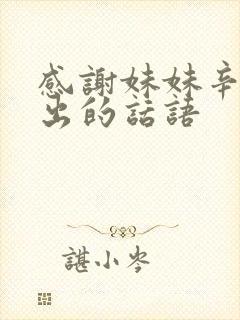 感謝妹妹辛
出的話語
諶小岑